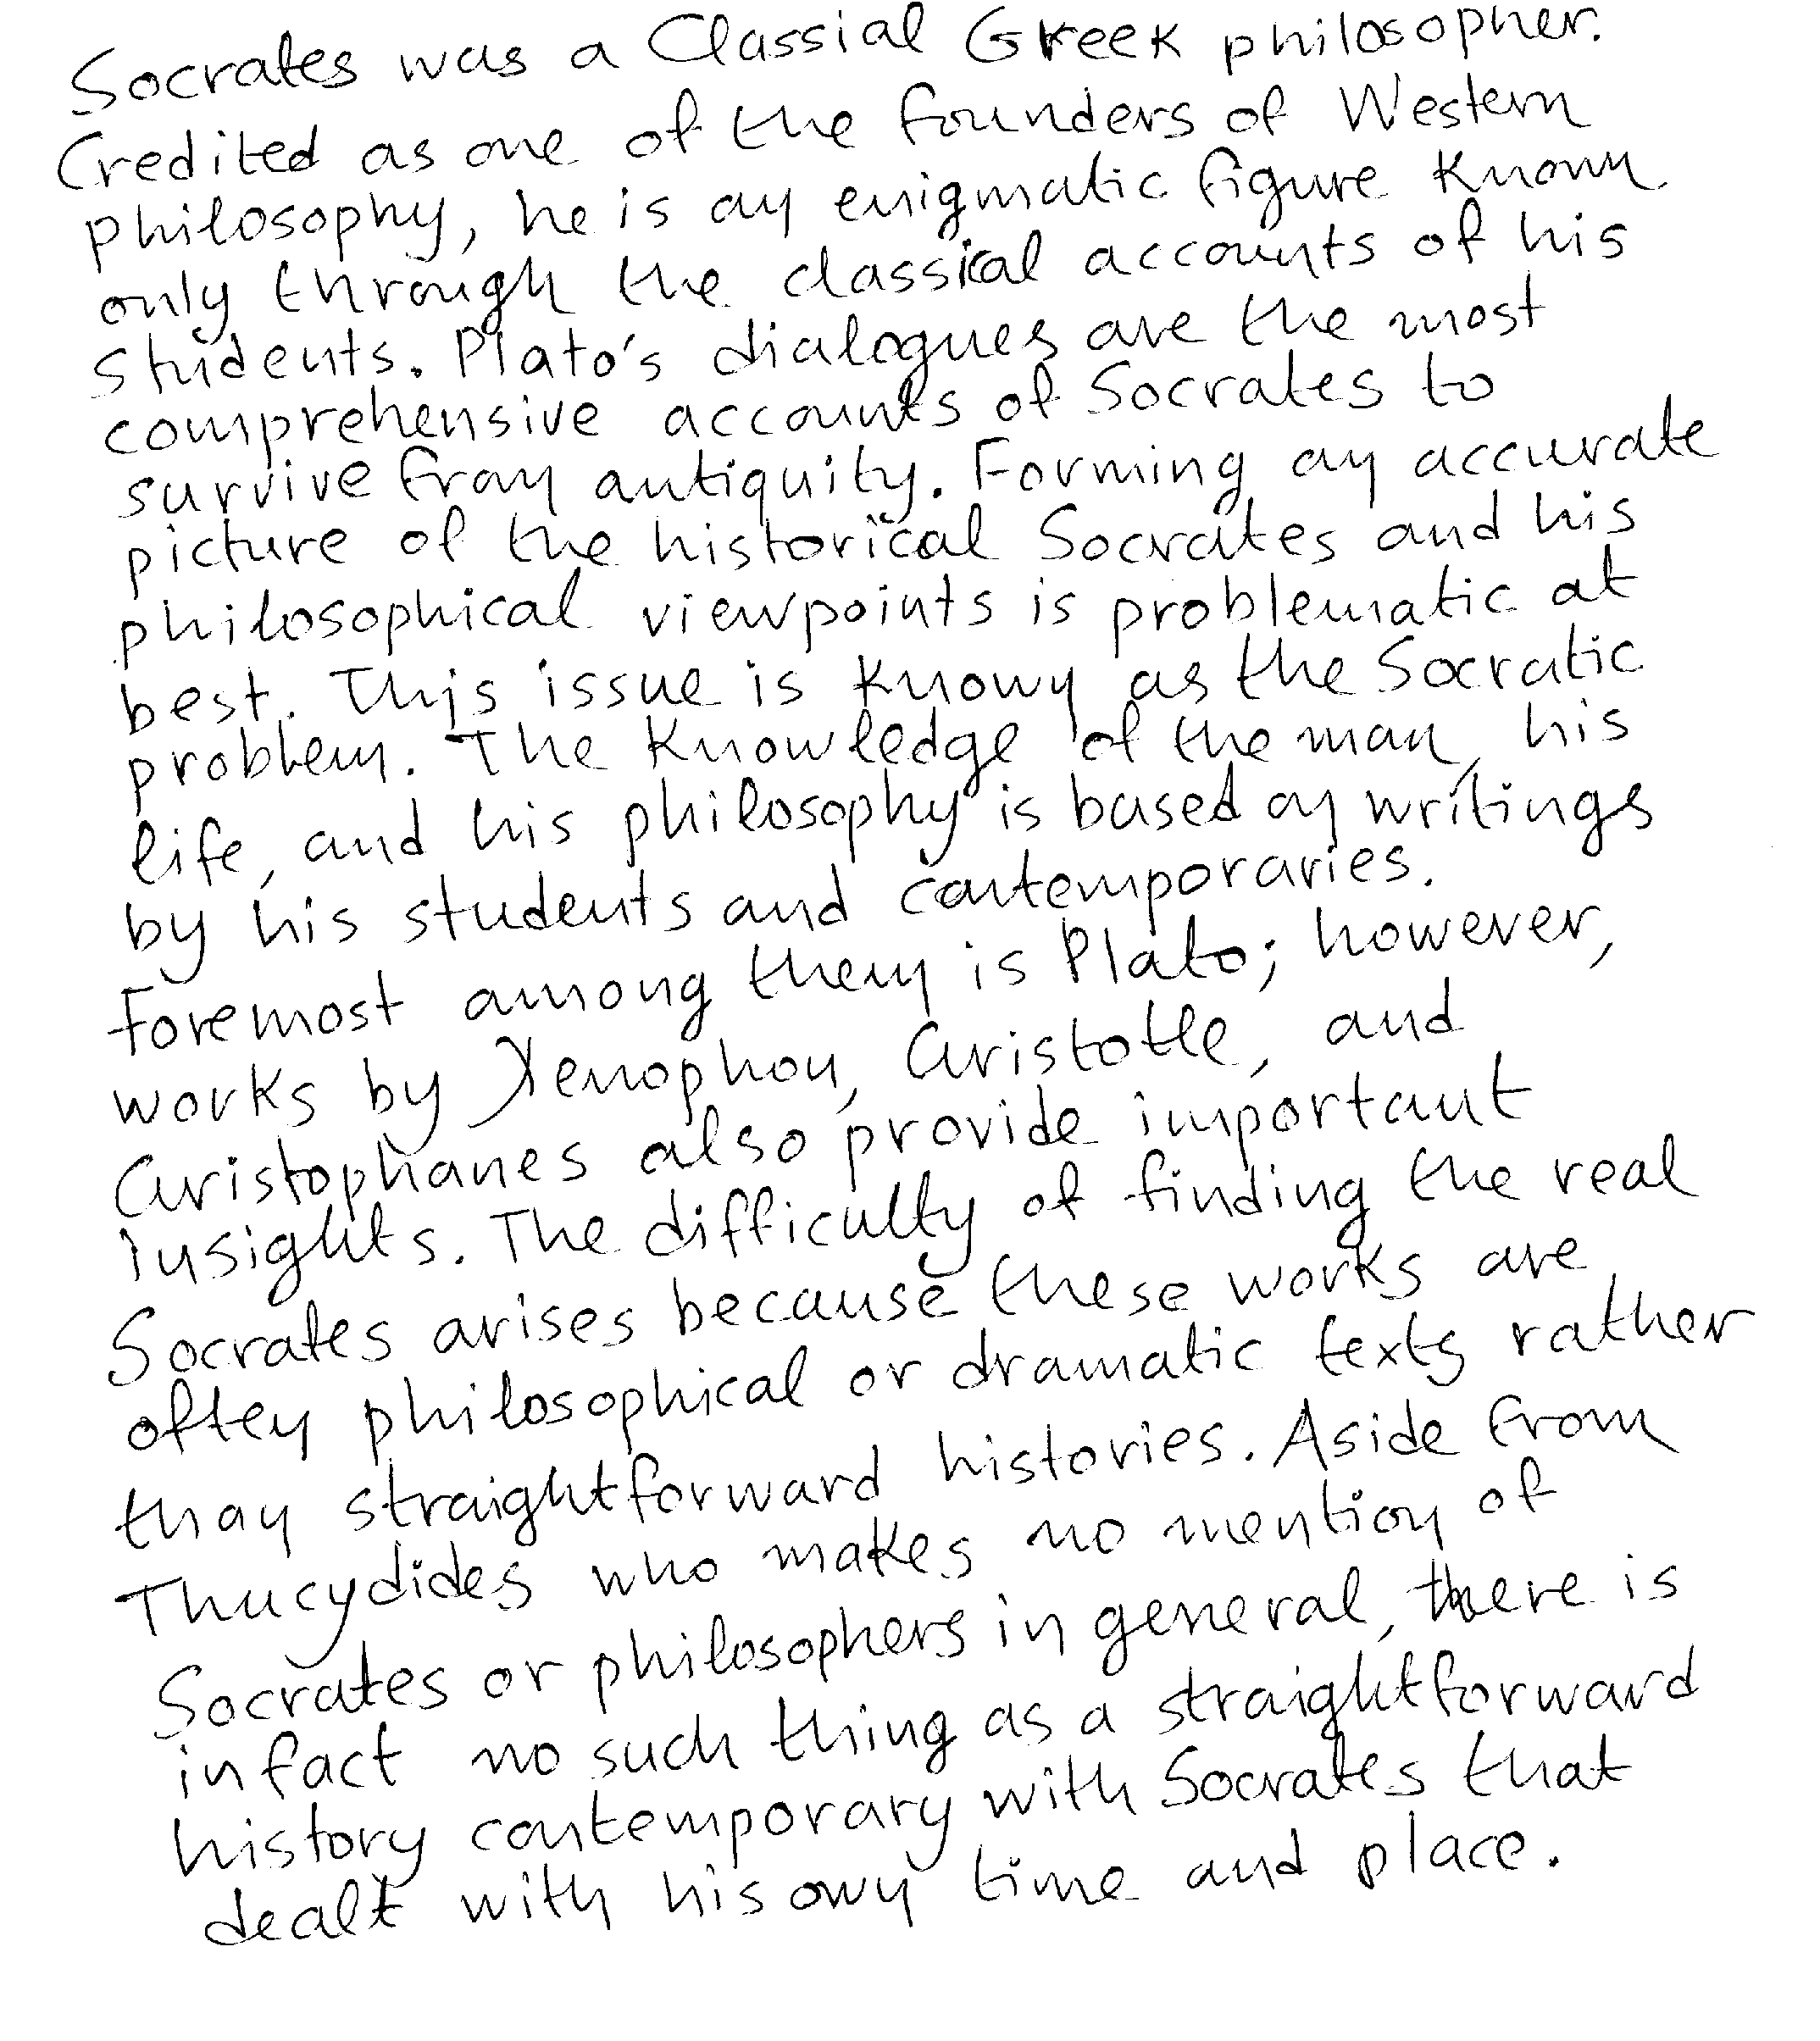 Socrates was a Classial Greek philosopher.
Credited as one of the founders of Western
philosophy, he is an enigmatic figure known
only through the classical accounts of his
students. Plato's dialogues are the most
comprehensive accounts of Socrates to
survive from antiquity. Forming an accurate
picture of the historical Socrates and his
philosophical viewpoints is problematic at
best. This issue is known as the Socratic
problem. The knowledge of the man, his
life, and his philosophy is based on writings
by his students and contemporaries.
Foremost among them is Plato; however,
works by Xenophon, Aristotle, and
Aristophanes also provide important
insights. The difficulty of finding the real
Socrates arises because these works are
often philosophical or dramatic texts rather
than straightforward histories. Aside from
Thucydides who makes no mention of
Socrates or philosophers in general, there is
in fact no such thing as a straightforward
history contemporary with Socrates that
dealt with his own time and place.